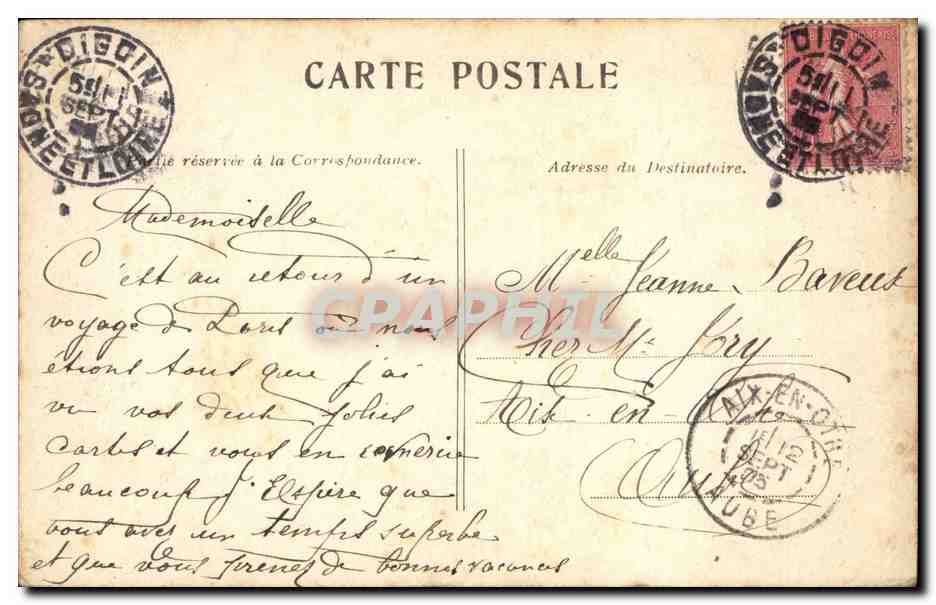 DIGOIN
SAONE ET LOIRE
5E 11
SEPT
05
DIGOIN
SAONE ET LOIRE
5E 11
SEPT
05
CARTE POSTALE
Partie réservée à la Correspondance.
Adresse du Destinataire.
Mademoiselle
C'est au retour d'un
voyage de Paris où nous
étions tous que j'ai
vu vos deux jolies
cartes et vous en remercie
beaucoup J'Espère que
vous avez un temps superbe
et que vous prenez de bonnes vacances
Melle Jeanne
Cher Mr
Aix-en-Othe
Aube
AIX-EN-OTHE
12
SEPT
05
AUBE
CPAPHIL